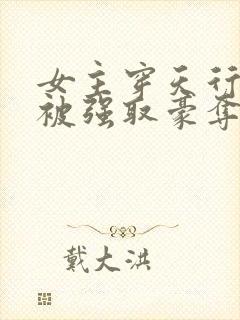 女主穿天行
被强取豪夺
戴大洪